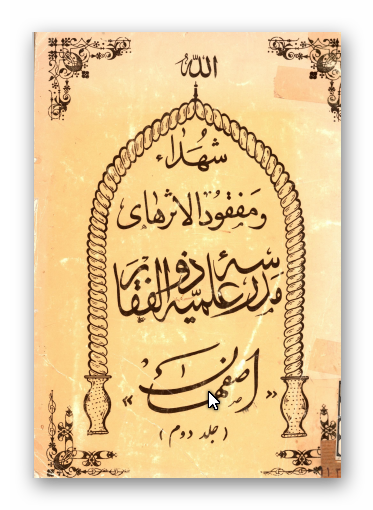 الله
شهداء
و مفقودالاثرهای
مدرسهٔ علمیه ذوالفقار
«اصفهان»
(جلد دوم)